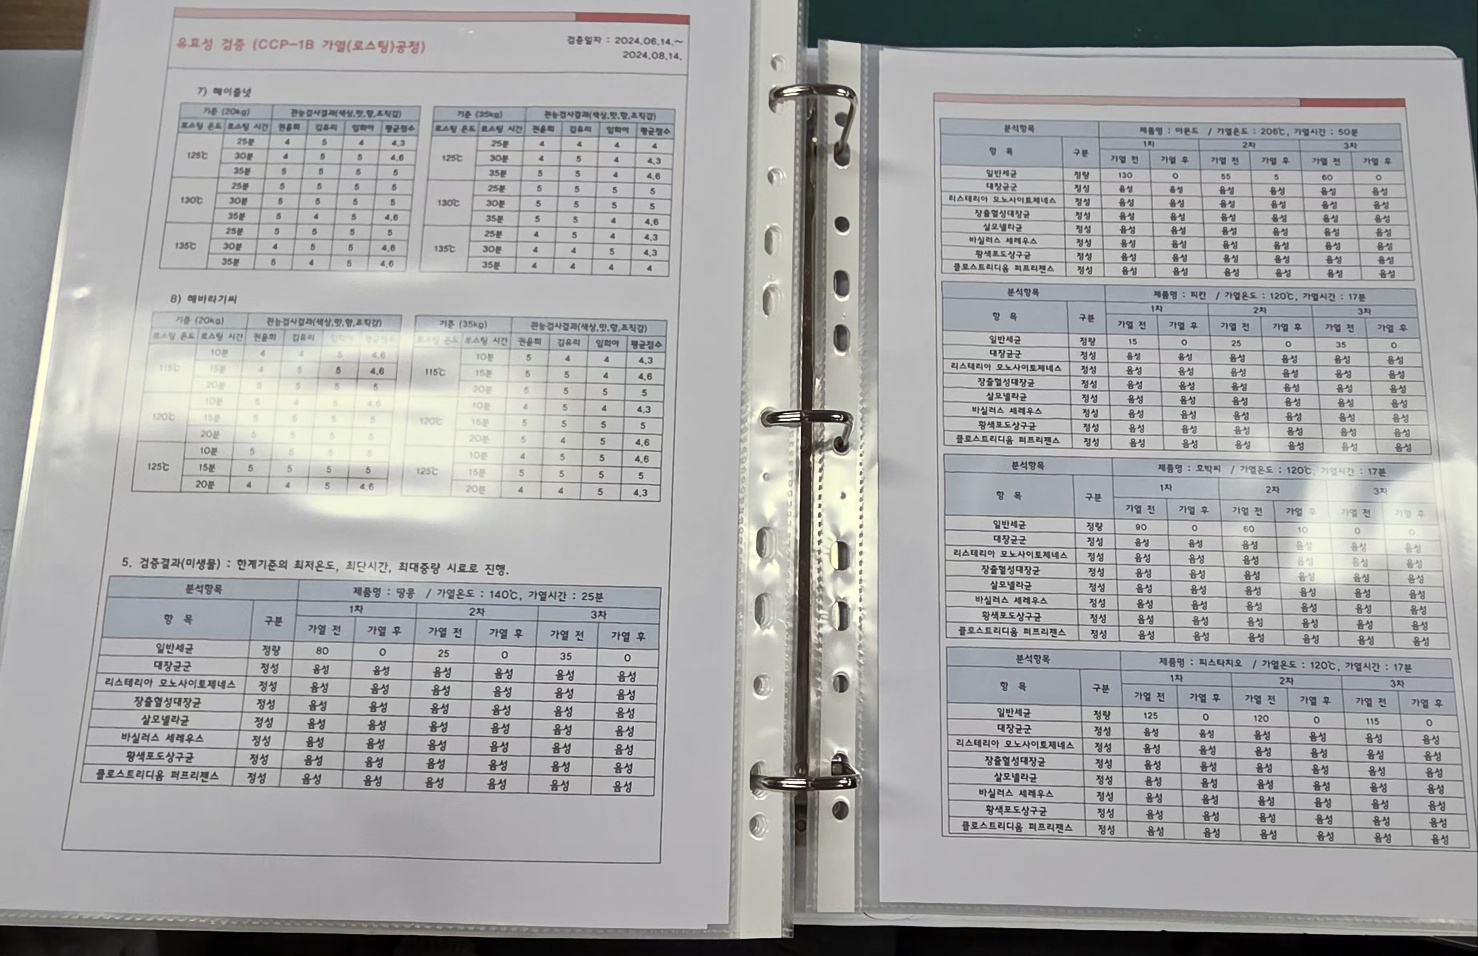 유효성 검증 (CCP-1B 가열(로스팅)공정)
검증일자 : 2024.06.14.~
2024.08.14.
7) 헤이즐넛
기준 (20kg) 관능검사결과(색상,맛,향,조직감)
로스팅 온도 로스팅 시간 권윤희 김유리 임희아 평균점수
125℃
25분 4 5 4 4.3
30분 4 5 5 4.6
35분 5 5 5 5
130℃
25분 5 5 5 5
30분 5 5 5 5
35분 5 4 5 4.6
135℃
25분 5 5 5 5
30분 4 5 5 4.6
35분 5 4 5 4.6
기준 (35kg) 관능검사결과(색상,맛,향,조직감)
로스팅 온도 로스팅 시간 권윤희 김유리 임희아 평균점수
125℃
25분 4 4 4 4
30분 4 5 4 4.3
35분 5 5 4 4.6
130℃
25분 5 5 5 5
30분 5 5 5 5
35분 5 5 4 4.6
135℃
25분 4 5 4 4.3
30분 4 4 5 4.3
35분 4 4 4 4
8) 해바라기씨
기준 (20kg) 관능검사결과(색상,맛,향,조직감)
로스팅 온도 로스팅 시간 권윤희 김유리
115℃
10분 4 4 5 4.6
15분 4 5 5 4.6
20분 5 5 5 5
120℃
10분 5 4 5 4.6
15분 5 5 5 5
20분 5 5 5 5
125℃
10분 5 5 5 5
15분 5 5 5 5
20분 4 4 5 4.6
기준 (35kg) 관능검사결과(색상,맛,향,조직감)
로스팅 온도 로스팅 시간 권윤희 김유리 임희아 평균점수
115℃
10분 5 4 4 4.3
15분 5 5 4 4.6
20분 5 5 5 5
120℃
10분 4 5 4 4.3
15분 5 5 5 5
20분 5 4 5 4.6
125℃
10분 4 5 5 4.6
15분 5 5 5 5
20분 4 4 5 4.3
5. 검증결과(미생물) : 한계기준의 최저온도, 최단시간, 최대중량 시료로 진행.
분석항목 제품명 : 땅콩 / 가열온도 : 140℃, 가열시간 : 25분
항 목 구분 1차 2차 3차
가열 전 가열 후 가열 전 가열 후 가열 전 가열 후
일반세균 정량 80 0 25 0 35 0
대장균군 정성 음성 음성 음성 음성 음성 음성
리스테리아 모노사이토제네스 정성 음성 음성 음성 음성 음성 음성
장출혈성대장균 정성 음성 음성 음성 음성 음성 음성
살모넬라균 정성 음성 음성 음성 음성 음성 음성
바실러스 세레우스 정성 음성 음성 음성 음성 음성 음성
황색포도상구균 정성 음성 음성 음성 음성 음성 음성
클로스트리디움 퍼프리젠스 정성 음성 음성 음성 음성 음성 음성
분석항목 제품명 : 아몬드 / 가열온도 : 206℃, 가열시간 : 50분
항 목 구분 1차 2차 3차
가열 전 가열 후 가열 전 가열 후 가열 전 가열 후
일반세균 정량 130 0 55 5 60 0
대장균군 정성 음성 음성 음성 음성 음성 음성
리스테리아 모노사이토제네스 정성 음성 음성 음성 음성 음성 음성
장출혈성대장균 정성 음성 음성 음성 음성 음성 음성
살모넬라균 정성 음성 음성 음성 음성 음성 음성
바실러스 세레우스 정성 음성 음성 음성 음성 음성 음성
황색포도상구균 정성 음성 음성 음성 음성 음성 음성
클로스트리디움 퍼프리젠스 정성 음성 음성 음성 음성 음성 음성
분석항목 제품명 : 피칸 / 가열온도 : 120℃, 가열시간 : 17분
항 목 구분 1차 2차 3차
가열 전 가열 후 가열 전 가열 후 가열 전 가열 후
일반세균 정량 15 0 25 0 35 0
대장균군 정성 음성 음성 음성 음성 음성 음성
리스테리아 모노사이토제네스 정성 음성 음성 음성 음성 음성 음성
장출혈성대장균 정성 음성 음성 음성 음성 음성 음성
살모넬라균 정성 음성 음성 음성 음성 음성 음성
바실러스 세레우스 정성 음성 음성 음성 음성 음성 음성
황색포도상구균 정성 음성 음성 음성 음성 음성 음성
클로스트리디움 퍼프리젠스 정성 음성 음성 음성 음성 음성 음성
분석항목 제품명 : 호박씨 / 가열온도 : 120℃, 가열시간 : 17분
항 목 구분 1차 2차 3차
가열 전 가열 후 가열 전 가열 후 가열 전 가열 후
일반세균 정량 90 0 60 10 0 0
대장균군 정성 음성 음성 음성 음성 음성 음성
리스테리아 모노사이토제네스 정성 음성 음성 음성 음성 음성 음성
장출혈성대장균 정성 음성 음성 음성 음성 음성 음성
살모넬라균 정성 음성 음성 음성 음성 음성 음성
바실러스 세레우스 정성 음성 음성 음성 음성 음성 음성
황색포도상구균 정성 음성 음성 음성 음성 음성 음성
클로스트리디움 퍼프리젠스 정성 음성 음성 음성 음성 음성 음성
분석항목 제품명 : 피스타치오 / 가열온도 : 120℃, 가열시간 : 17분
항 목 구분 1차 2차 3차
가열 전 가열 후 가열 전 가열 후 가열 전 가열 후
일반세균 정량 125 0 120 0 115 0
대장균군 정성 음성 음성 음성 음성 음성 음성
리스테리아 모노사이토제네스 정성 음성 음성 음성 음성 음성 음성
장출혈성대장균 정성 음성 음성 음성 음성 음성 음성
살모넬라균 정성 음성 음성 음성 음성 음성 음성
바실러스 세레우스 정성 음성 음성 음성 음성 음성 음성
황색포도상구균 정성 음성 음성 음성 음성 음성 음성
클로스트리디움 퍼프리젠스 정성 음성 음성 음성 음성 음성 음성